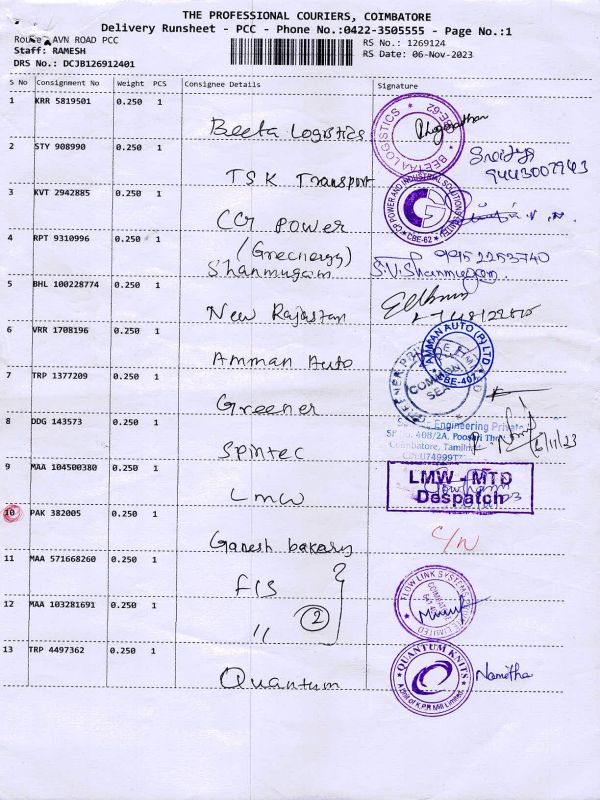 THE PROFESSIONAL COURIERS, COIMBATORE
Delivery Runsheet - PCC - Phone No.:0422-3505555 - Page No.:1
AVN ROAD PCC
Staff: RAMESH
DRS No.: DCJB126912401
RS No.: 1269124
RS Date: 06-Nov-2023
S No Consignment No Weight PCS Consignee Details Signature
1 KRR 5819501 0.250 1
Beeta Logistics
BEETAA LOGISTICS CBE-62
2 STY 908990 0.250 1
TSK Transport
9443007943
3 KVT 2942885 0.250 1
CG Power
(Greenergy)
CBE-62
4 RPT 9310996 0.250 1
Shanmugam
S.V. Shanmugam
9952253740
5 BHL 100228774 0.250 1
New Rajastan
6 VRR 1708196 0.250 1
Amman Auto
AMMAN AUTO (P) LTD
CBE-402
7 TRP 1377209 0.250 1
Greener
8 DDG 143573 0.250 1
Spintec
Engineering Private
SF No. 408/2A,
Coimbatore,
6/11/23
9 MAA 104500380 0.250 1
LMW
LMW - MTD
Despatch
10 PAK 382005 0.250 1
Ganesh bakary
C/N
11 MAA 571668260 0.250 1
FIS
FLOW LINK SYSTEMS PRIVATE LIMITED
12 MAA 103281691 0.250 1
〃 2
13 TRP 4497362 0.250 1
Quantum
QUANTUM KNITS
A Unit of K.P.R Mill Limited.
Namitha